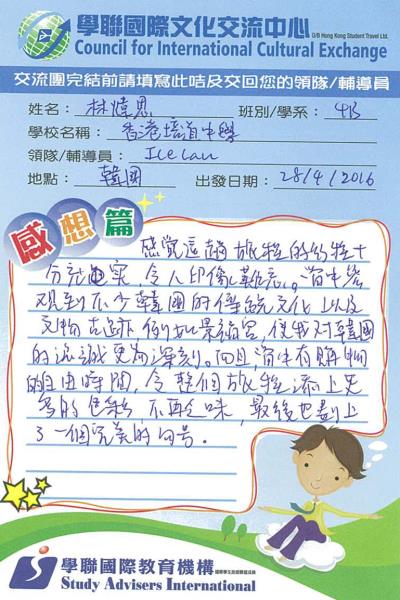 學聯國際文化交流中心
O/B Hong Kong Student Travel Ltd.
Council for International Cultural Exchange
交流團完結前請填寫此咭及交回您的領隊/輔導員
姓名： 林煒恩 班別/學系： 4B
學校名稱： 香港培道中學
領隊/輔導員： Ice Lau
地點： 韓國 出發日期： 28/4/2016
感想篇
感覺這趟旅程的行程十
分充實，令人印象難忘。當中
觀到不少韓國的傳統文化以及
文物古迹，例如景福宮，使我對韓國
的認識更為深刻。而且，當中有購物
的自由時間，令整個旅程添上更
多的色彩，不再乏味，最後也劃上
了一個完美的句号。
學聯國際教育機構
Study Advisers International